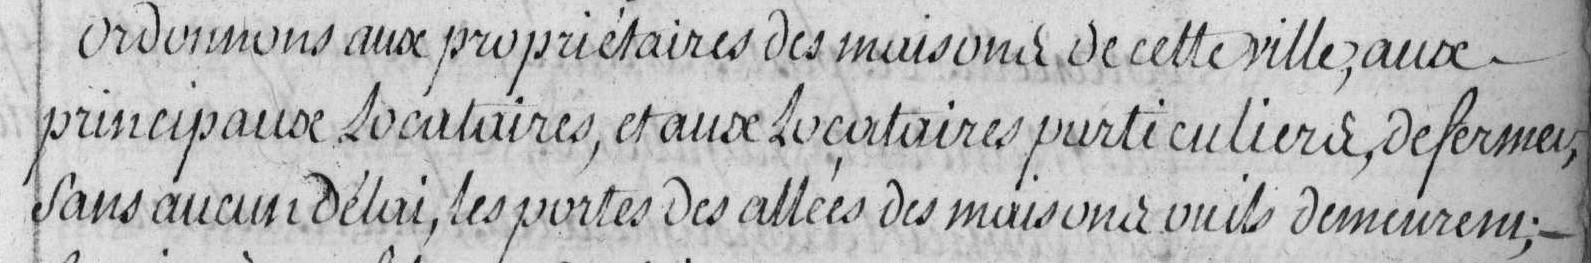 ordonnons aux propriétaires des maisons de cette ville, aux
principaux Locataires, et aux Locataires particuliers, de fermer,
Sans aucun délai, les portes des allées des maisons ou ils demeurent;